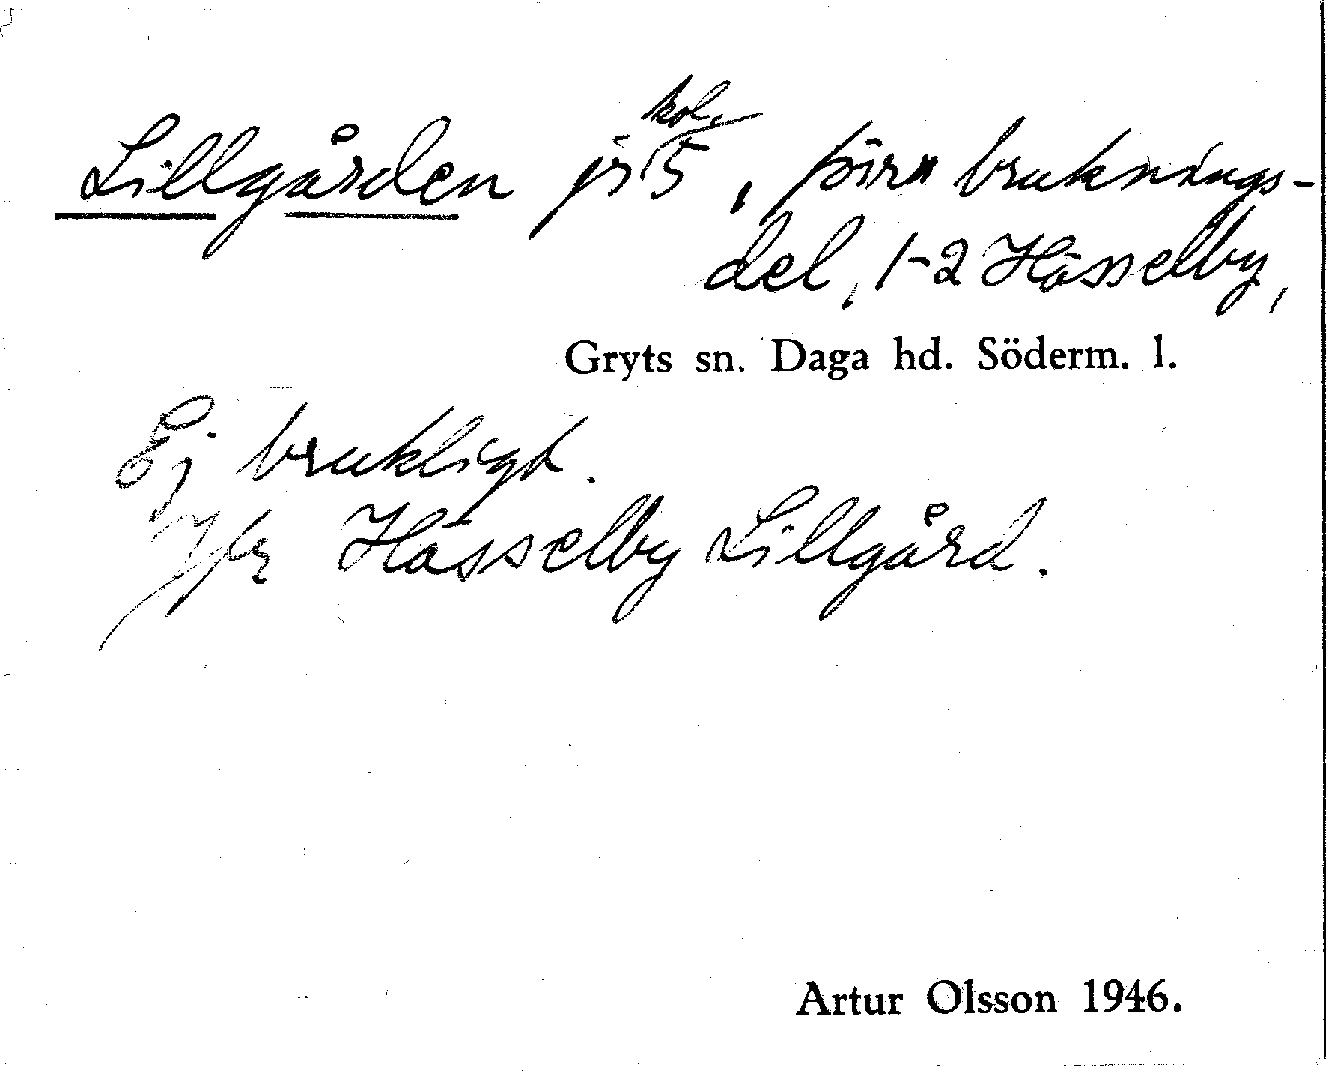 Lillgården jr 5 kol., förr bruknings-
del, 1-2 Hässelby,
Gryts sn. Daga hd. Söderm. l.
Ej brukligt.
Jfr Hässelby Lillgård.
Artur Olsson 1946.